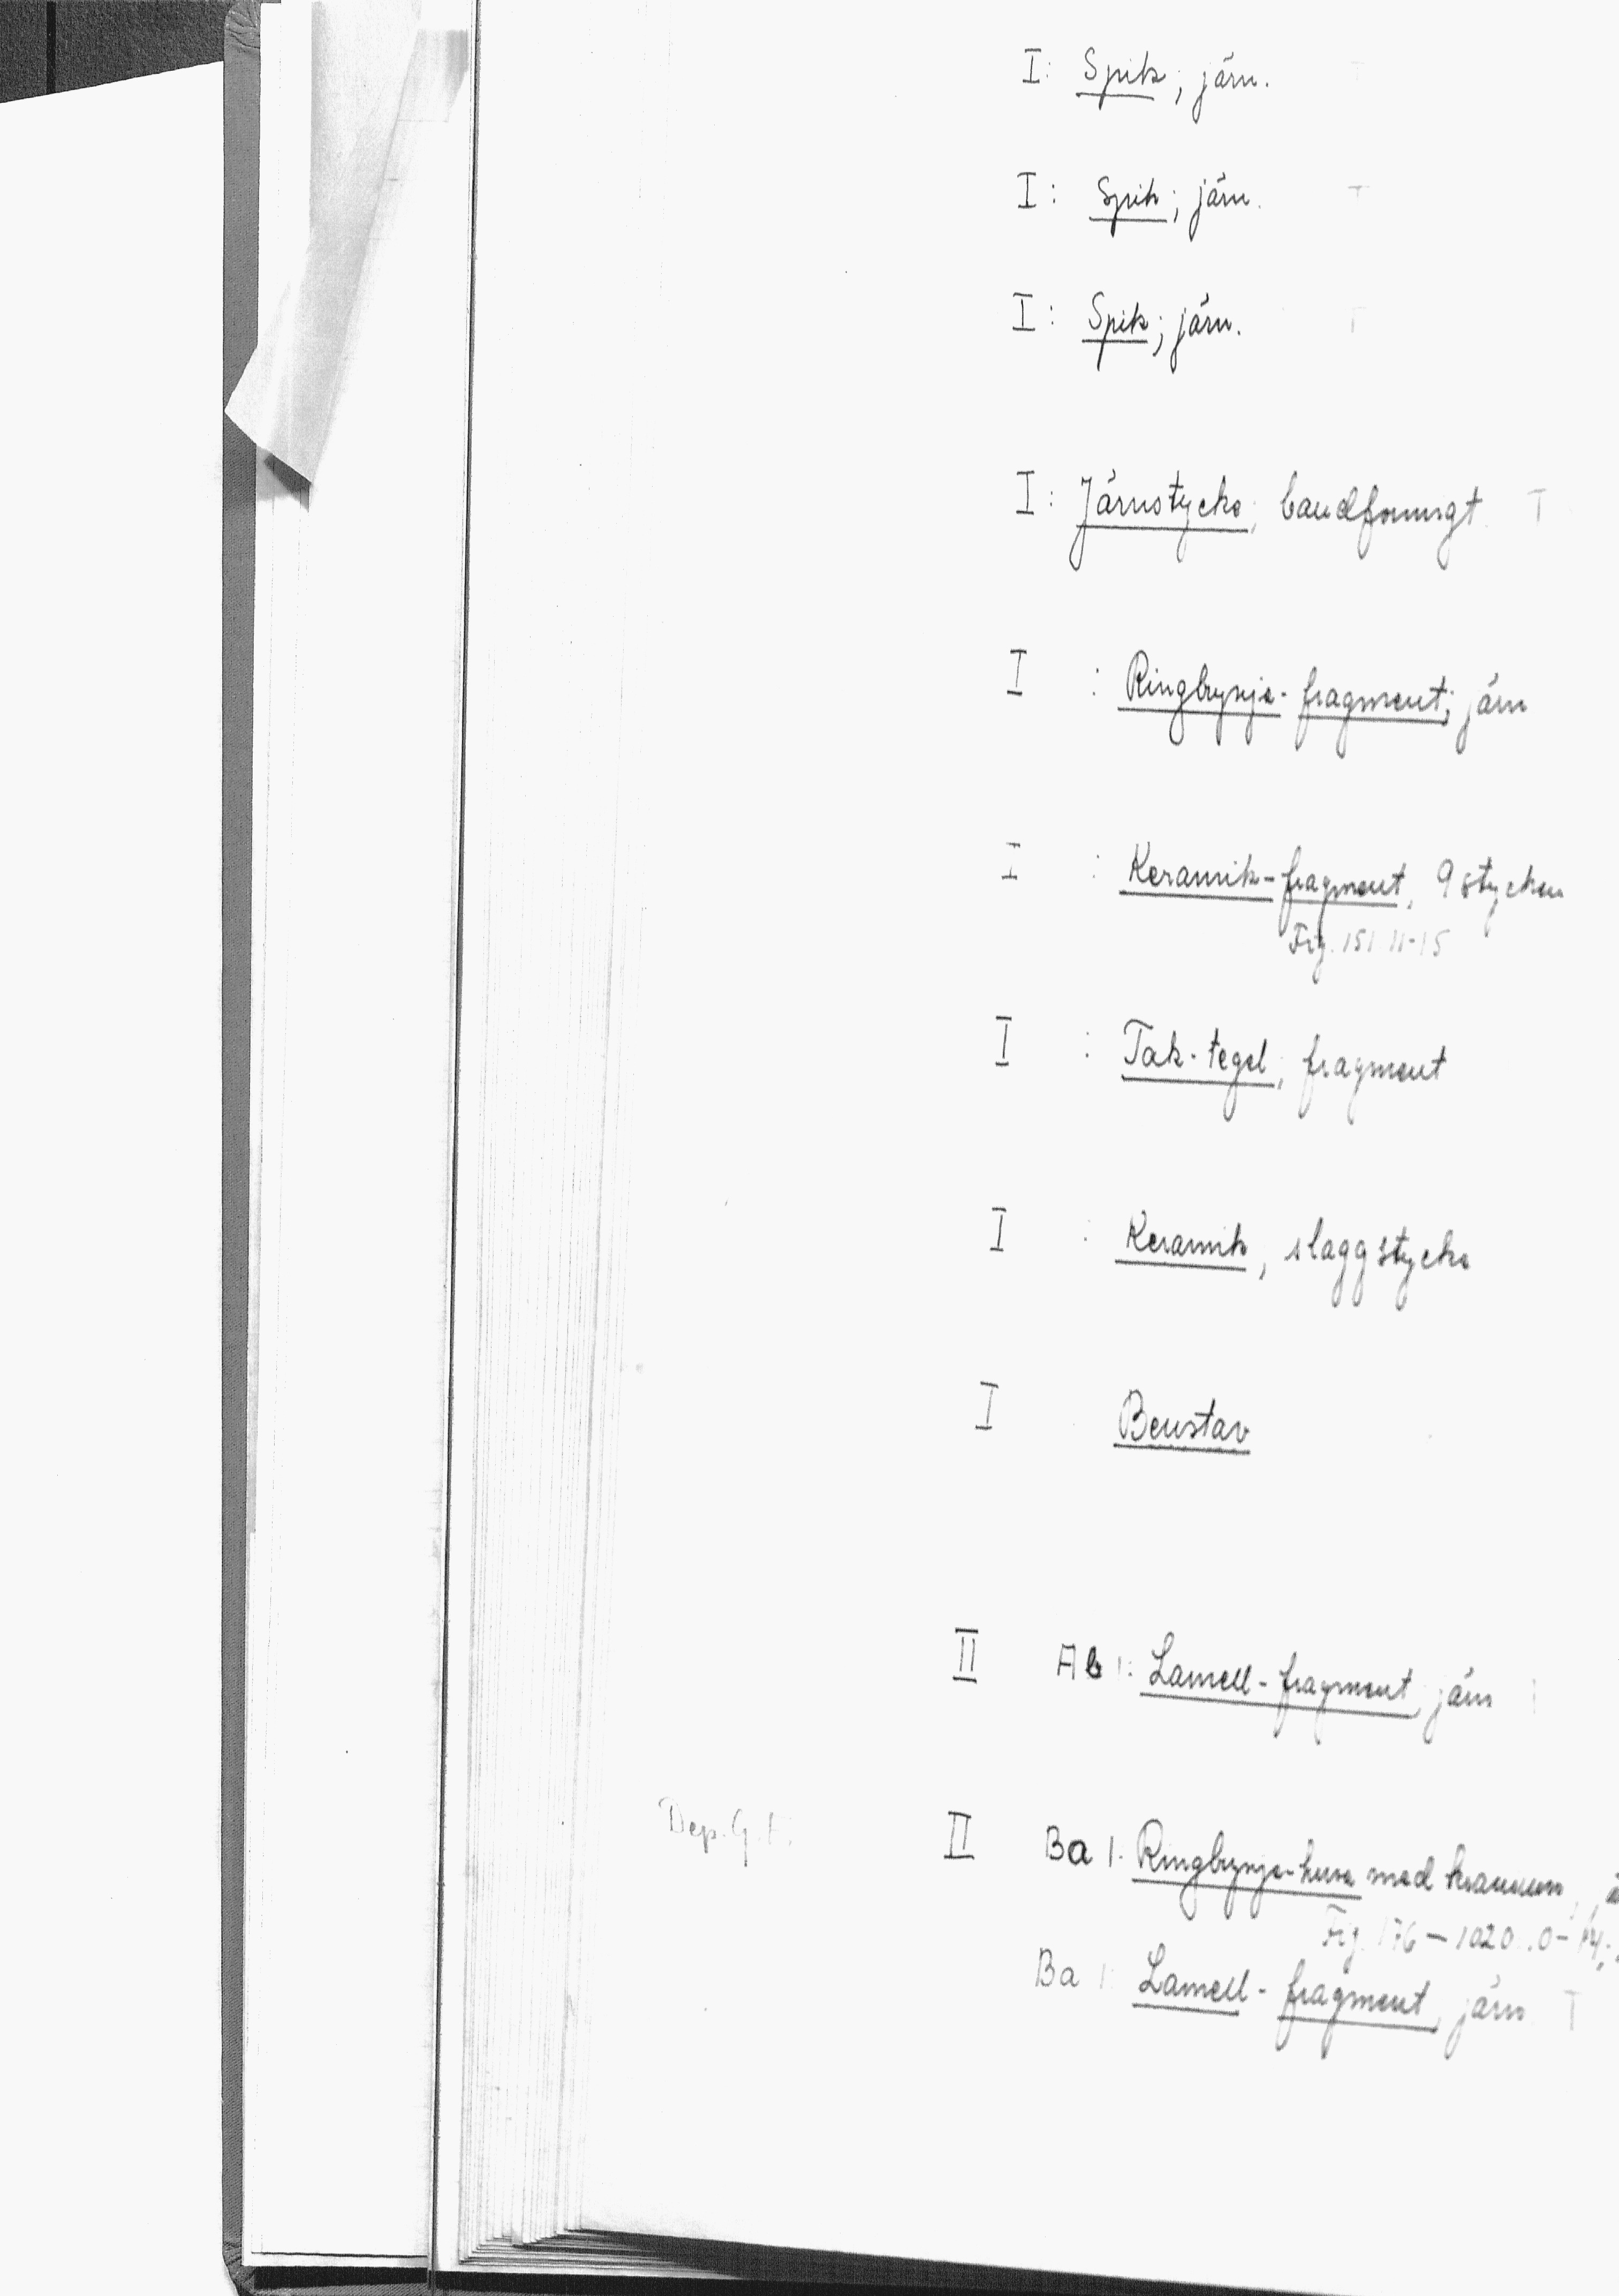 I: Spik; järn. T
I: Spik; järn. T
I: Spik; järn. T
I: Järnstycke; bandformigt T
I : Ringbrynje-fragment; järn
I : Keramik-fragment, 9 stycken
Fig. 151 11-15
I : Tak-tegel; fragment
I : Keramik, slaggstycke
I Benstav
II Ab 1: Lamell-fragment järn
Dep. G.F. II Ba 1: Ringbrynje-huva med kranium,
Fig. 176 - 1020
Ba 1: Lamell-fragment, järn T